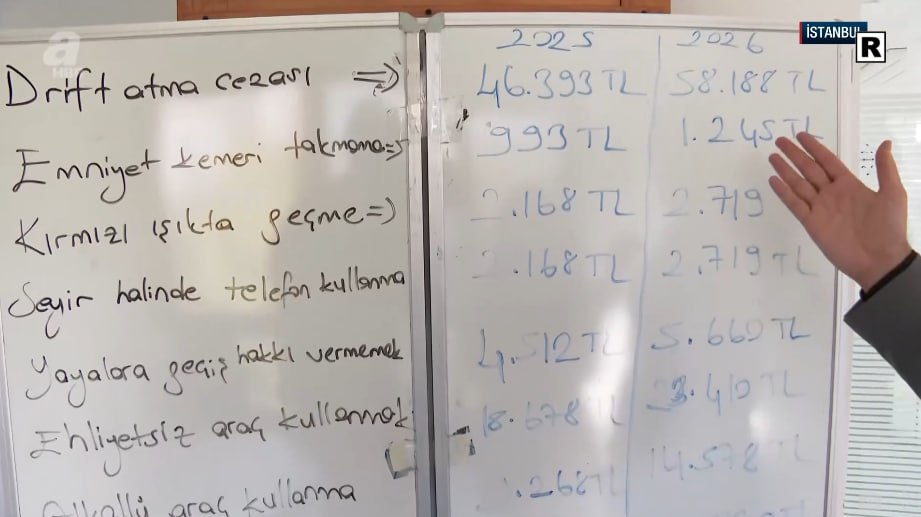 a
HABER
İSTANBUL
R
2025 2026
Drift atma cezası => 46.393 TL 58.188 TL
Emniyet kemeri takmama=> 993 TL 1.245 TL
Kırmızı ışıkta geçme=> 2.168 TL 2.719
Seyir halinde telefon kullanma 2.168 TL 2.719 TL
Yayalara geçiş hakkı vermemek 4.512 TL 5.660 TL
Ehliyetsiz araç kullanmak 18.678 TL 3.410 TL
araç kullanma .268 TL 14.578 TL